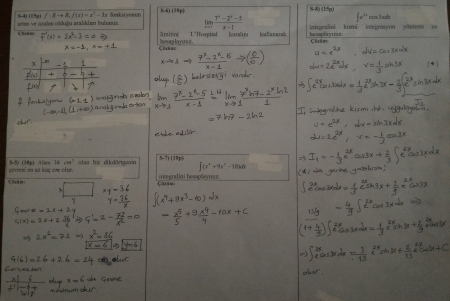 S-4) (15p) f : R→R, f(x) = x³ - 3x fonksiyonunun
artan ve azalan olduğu aralıkları bulunuz.
Çözüm:
f'(x) = 3x² - 3 = 0 ⇒
x = -1, x = +1
x -1 1
f'(x) + 0 - 0 +
f(x)
f fonksiyonu (-1,1) aralığında azalan
(-∞,-1), (1,+∞) aralığında artan
olur.
S-5) (10p) Alanı 36 cm² olan bir dikdörtgenin
çevresi en az kaç cm olur.
Çözüm:
x y xy = 36
y = 36/x
Çevre = 2x + 2y
2x² = 72 ⇒ x² = 36
x = 6 ⇒ y = 6
Ç(6) = 2.6 + 2.6 = 24 cm olur.
olup x = 6 da Çevre
minimum olur.
S-6) (10p)
lim x→1 (7^x - 2^x - 5)/(x - 1)
limitini L'Hospital kuralını kullanarak
hesaplayınız.
Çözüm:
x → 1 ⇒ (7^x - 2^x - 5)/(x - 1) → (0/0)
olup (0/0) belirsizliği vardır.
lim x→1 (7^x - 2^x - 5)/(x - 1) = lim x→1 (7^x ln7 - 2^x ln2)/1
= 7 ln7 - 2 ln2
elde edilir.
S-7) (10p) ∫(x⁴ + 9x³ - 10)dx
integralini hesaplayınız.
Çözüm:
∫(x⁴ + 9x³ - 10) dx
= x⁵/5 + 9x⁴/4 - 10x + C
S-8) (15p) ∫e^{2x} cos3xdx
integralini kısmi integrasyon yöntemi ile
hesaplayınız.
Çözüm:
u = e^{2x} dv = cos3xdx
du = 2e^{2x}dx v = 1/3 sin3x
⇒ ∫e^{2x}cos3xdx = 1/3 e^{2x} sin3x - 2/3 ∫e^{2x} sin3xdx (*)
I₁ integraline kısmi int. uygulayalım
u = e^{2x} dv = sin3xdx
du = 2e^{2x} v = -1/3 cos3x
⇒ I₁ = -1/3 e^{2x} cos3x + 2/3 ∫e^{2x} cos3xdx
(*) da yerine yazılırsa;
∫e^{2x}cos3xdx = 1/3 e^{2x} sin3x + 2/9 e^{2x} cos3x
- 4/9 ∫e^{2x} cos3xdx ⇒
13/9
(1 + 4/9) ∫e^{2x}cos3xdx = 1/3 e^{2x} sin3x + 2/9 e^{2x} cos3x
⇒ ∫e^{2x}cos3xdx = 3/13 e^{2x} sin3x + 2/13 e^{2x} cos3x + C
olur.